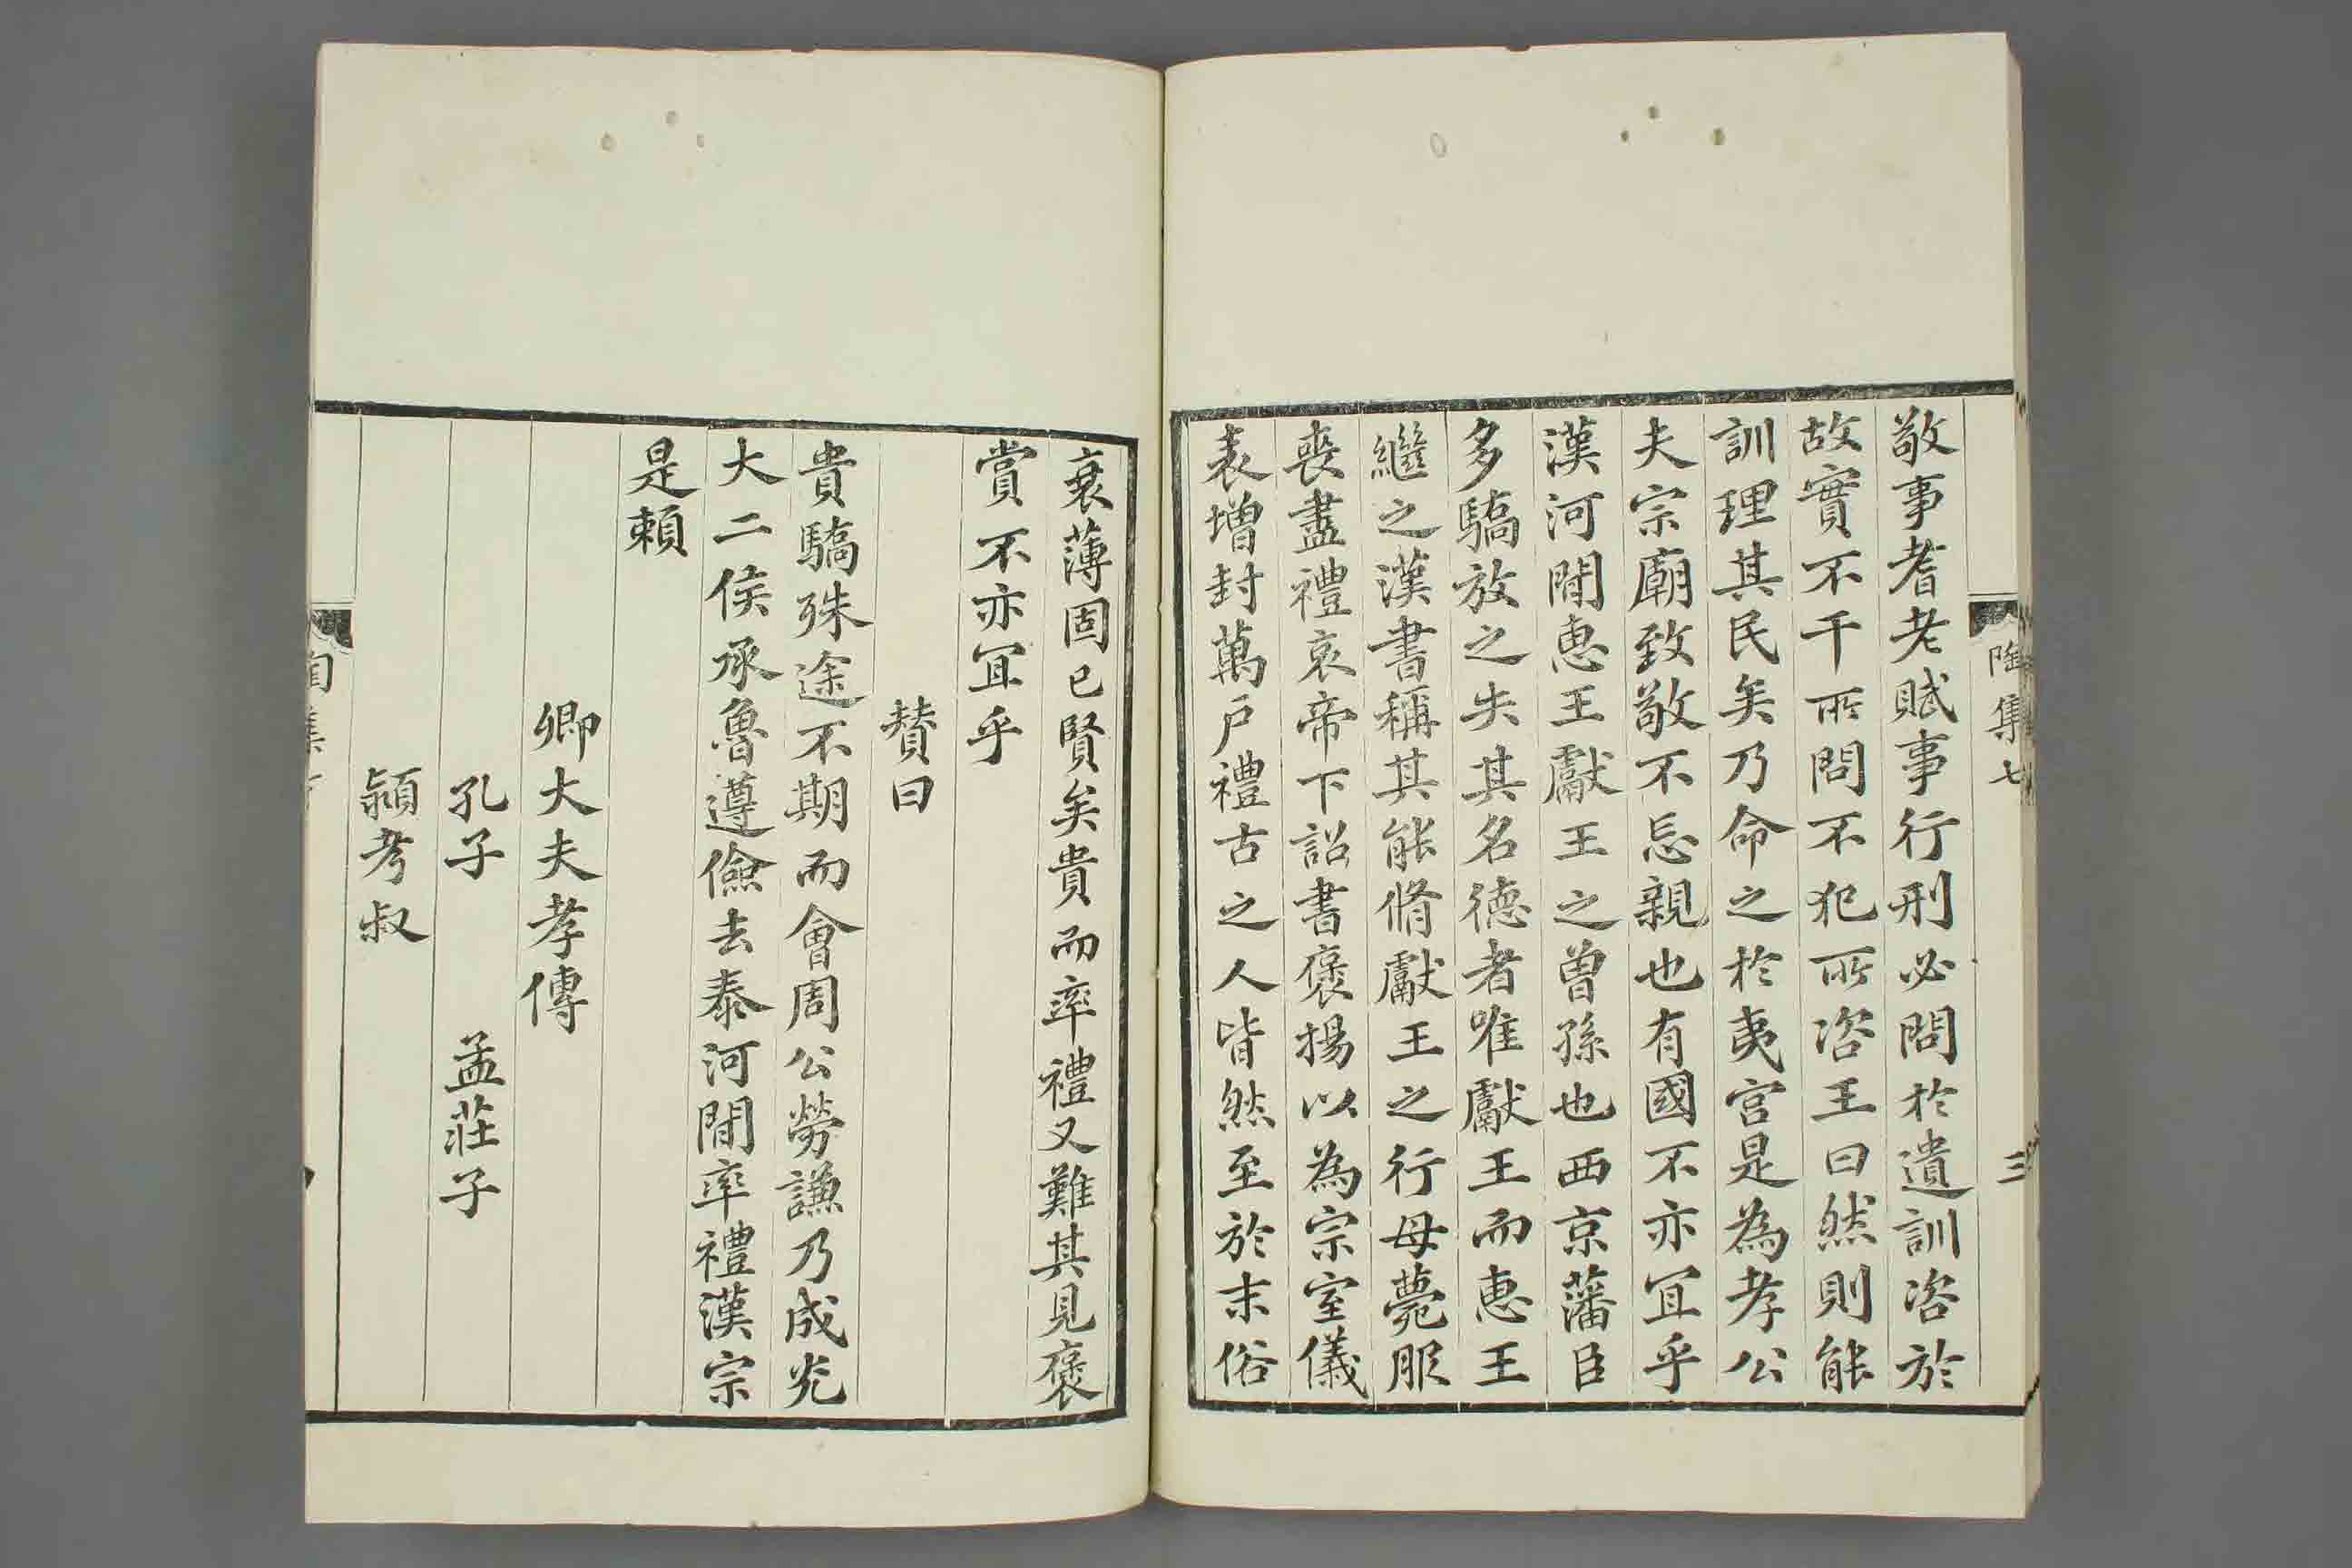 陶集七
三
敬事耆老賦事行刑必問於遺訓咨於
故實不干所問不犯所咨王曰然則能
訓理其民矣乃命之於夷宮是為孝公
夫宗廟致敬不忘親也有國不亦宜乎
漢河間惠王獻王之曾孫也西京藩臣
多驕放之失其名德者唯獻王而惠王
繼之漢書稱其能脩獻王之行母薨服
喪盡禮哀帝下詔書褒揚以為宗室儀
表增封萬戶禮古之人皆然至於末俗
衰薄固已賢矣貴而率禮又難其見褒
賞不亦宜乎
贊曰
貴驕殊途不期而會周公勞謙乃成光
大二侯承魯遵儉去泰河間率禮漢宗
是賴
卿大夫孝傳
孔子　孟莊子
潁考叔
陶集